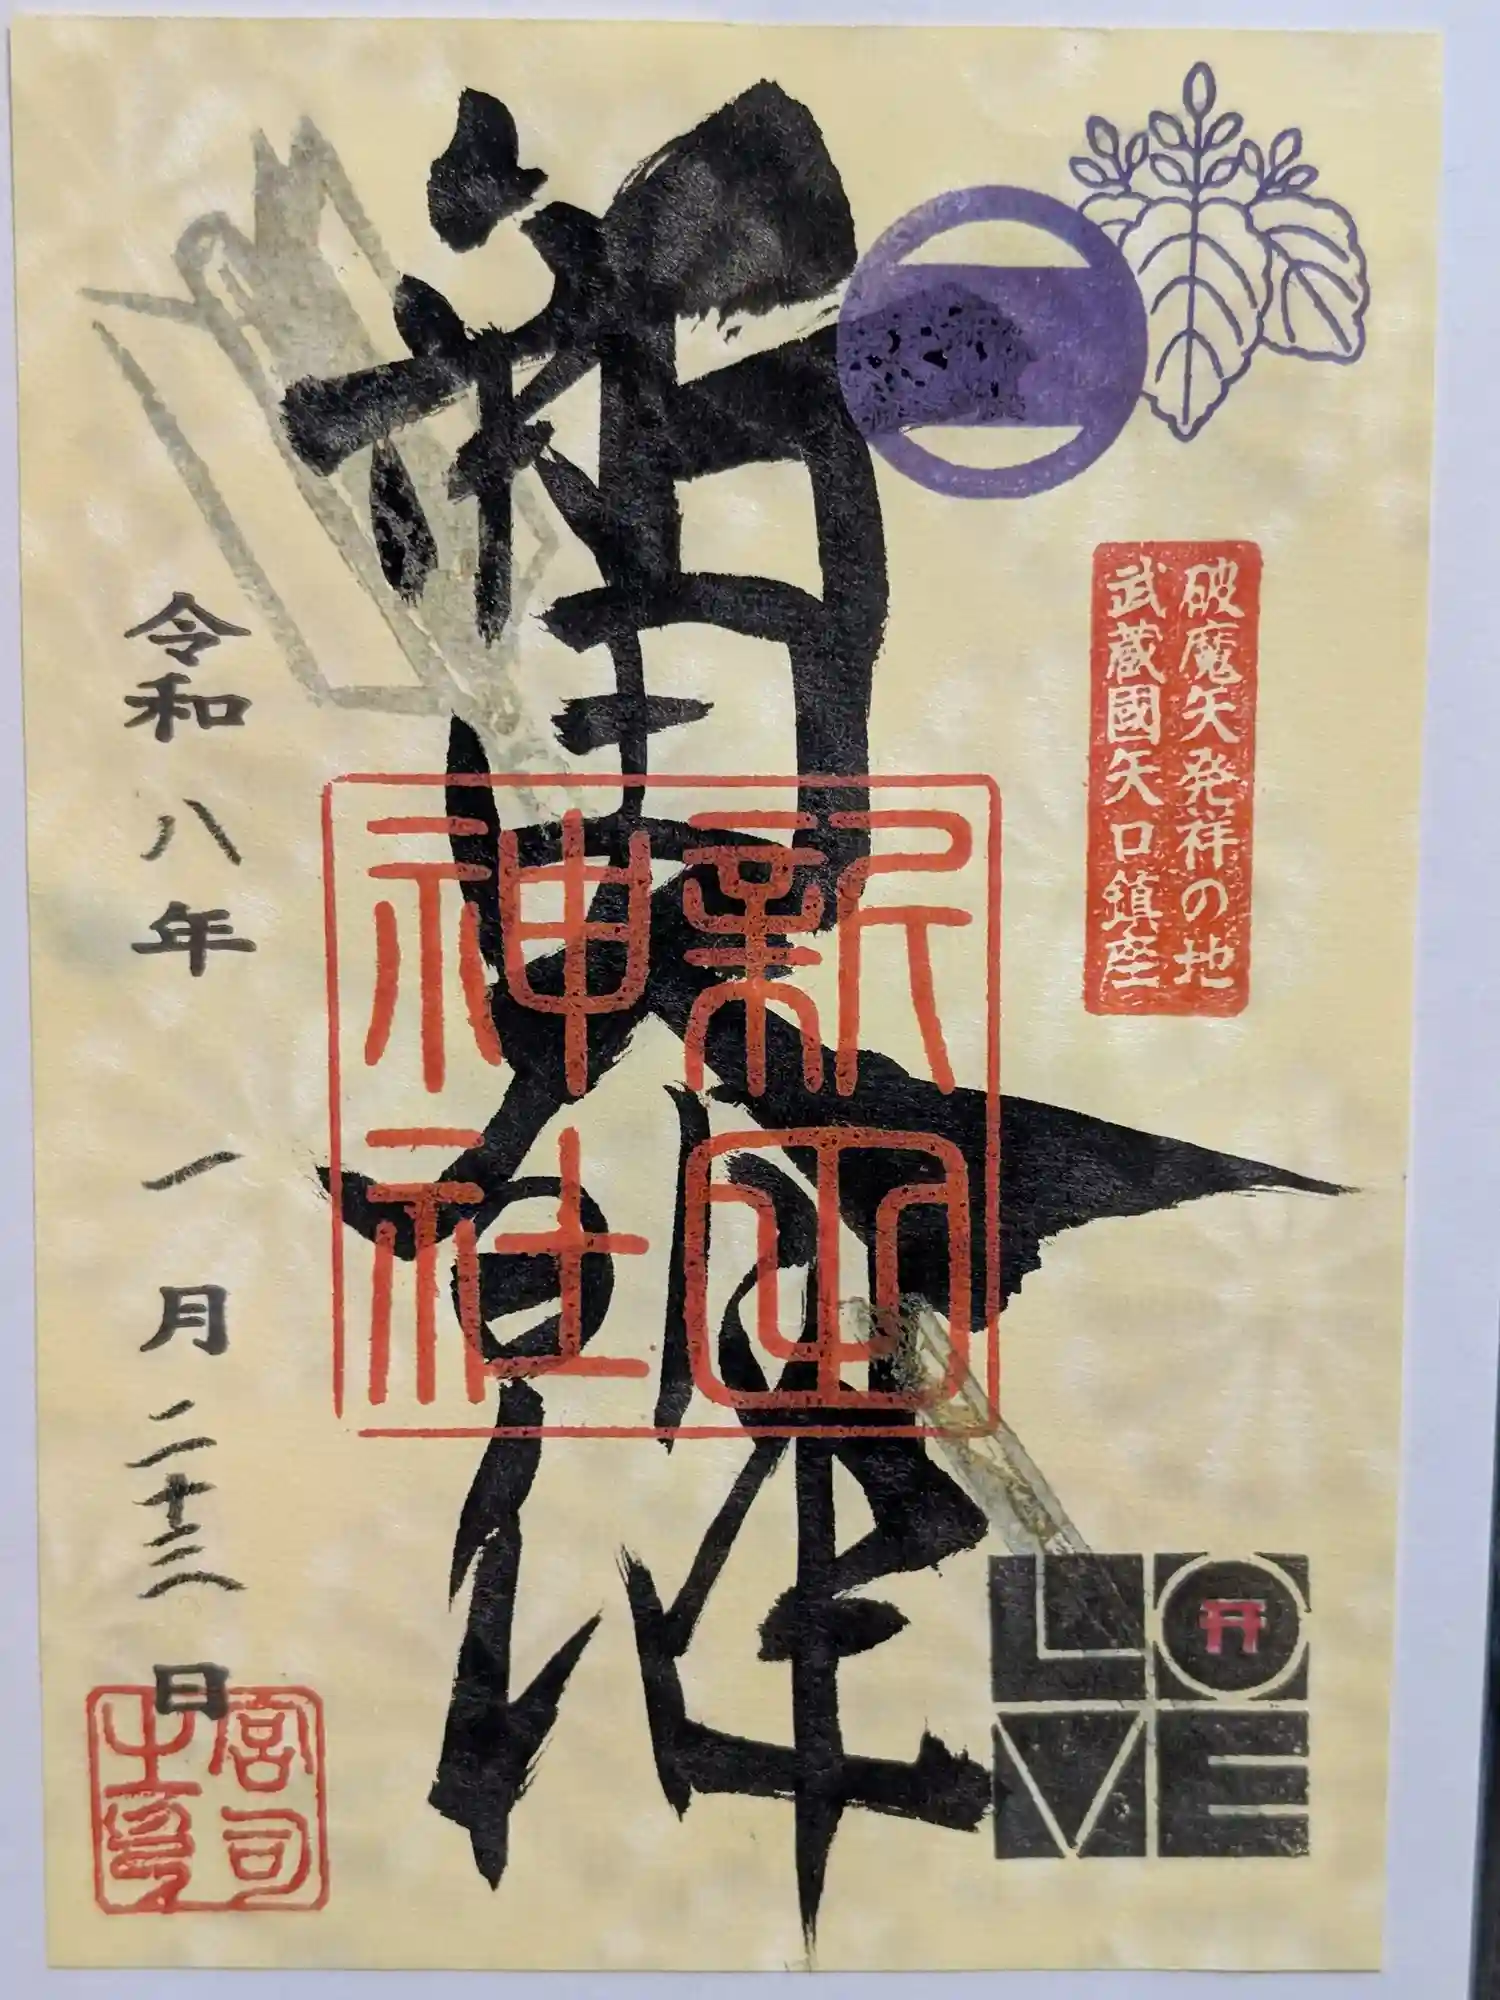 破魔矢発祥の地
武蔵國矢口鎮座
新田
神社
令和八年一月二十三日
宮司
之印
LO
VE